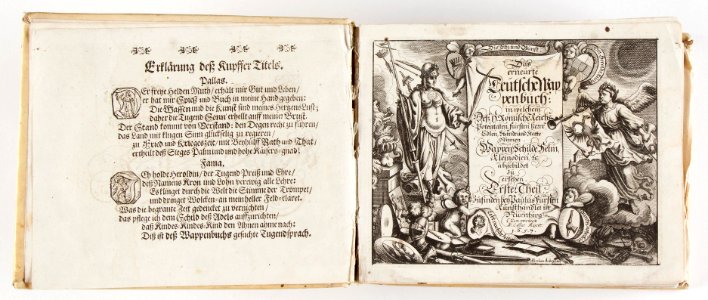 Erklärung deß Kupffer Titels.
Pallas.
Der freye Helden Muth/ erhält mir Gut und Leben/
er hat mir Spieß und Buch in meine Hand gegeben:
Die Waffen und die Kunst sind meines Hertzens Lust;
daher die Tugend Sonn' erhellt auff meiner Brust.
Der Stand kommt von Verstand: den Degen recht zu führen/
das Land mit klugen Sinn glückselig zu regieren/
zu Fried und Kriegszeit/ mit Rath und That/
erhelt deß Sieges Palm und hohe Kaisers-gnad.
Fama.
Ich holde Heroldin/ der Tugend Preiß und Ehre/
deß Namens Kron und Lohn alle Lehre:
Es klinget durch die Welt die Stimme der Trompet/
und dringet Wolcken-an mein heller
Was die begraute Zeit gedencket zu vernichten/
das pflege ich dem Schild deß Adels auffzurichten/
daß Kindes-Kindes-Kind den Ahnen ahme nach:
Diß ist deß Wappenbuchs gesuchte Tugendsprach.
Das
erneurte
Teutsche Wap
penbuch:
in welchem
Deß H. Römische Reichs
Potentaten Fürsten
Wappen Schilde Helm
Kleinodien &c.
abgebildet
zu
ersehen
Erster Theil
Zu finden bey Paulus Fürsten
Kunsthändler in
Nürnberg